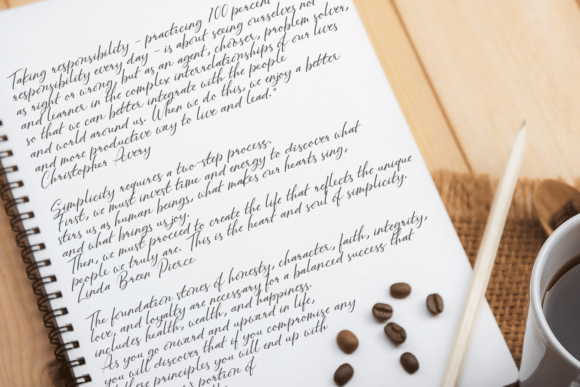 Taking responsibility - practicing 100 percent
responsibility every day - is about seeing ourselves not
as right or wrong, but as an agent, chooser, problem solver,
and learner in the complex interrelationships of our lives
so that we can better integrate with the people
and world around us. When we do this, we enjoy a better
and more productive way to live and lead."
Christopher Avery
Simplicity requires a two-step process.
First, we must invest time and energy to discover what
stirs us as human beings, what makes our hearts sing,
and what brings us joy.
Then, we must proceed to create the life that reflects the unique
people we truly are. This is the heart and soul of simplicity.
Linda Breen Pierce
The foundation stones of honesty, character, faith, integrity,
love, and loyalty are necessary for a balanced success that
includes health, wealth, and happiness.
As you go onward and upward in life,
you will discover that if you compromise any
these principles you will end up with
portion of